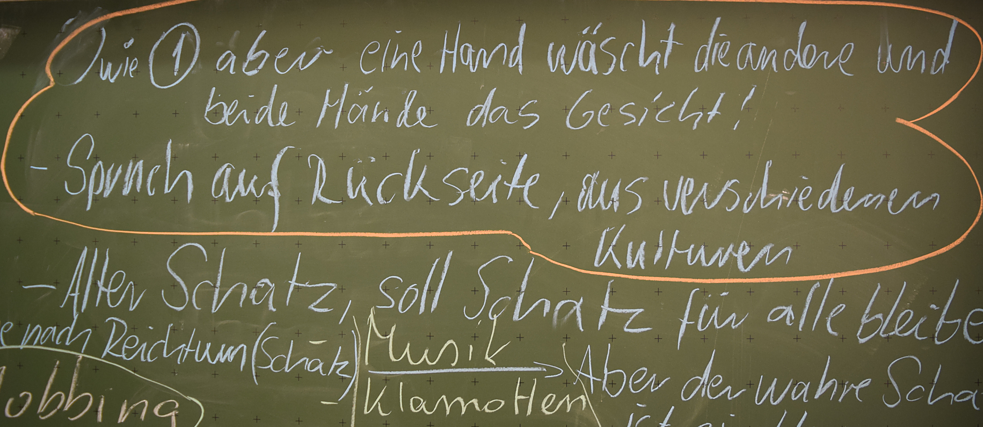 wie ① aber eine Hand wäscht die andere und
beide Hände das Gesicht!
- Spruch auf Rückseite, aus verschiedenen
Kulturen
- Alter Schatz, soll Schatz für alle bleibe
e nach Reichtum (Schatz)
Musik
- Klamotten
Aber der wahre Scha
obbing